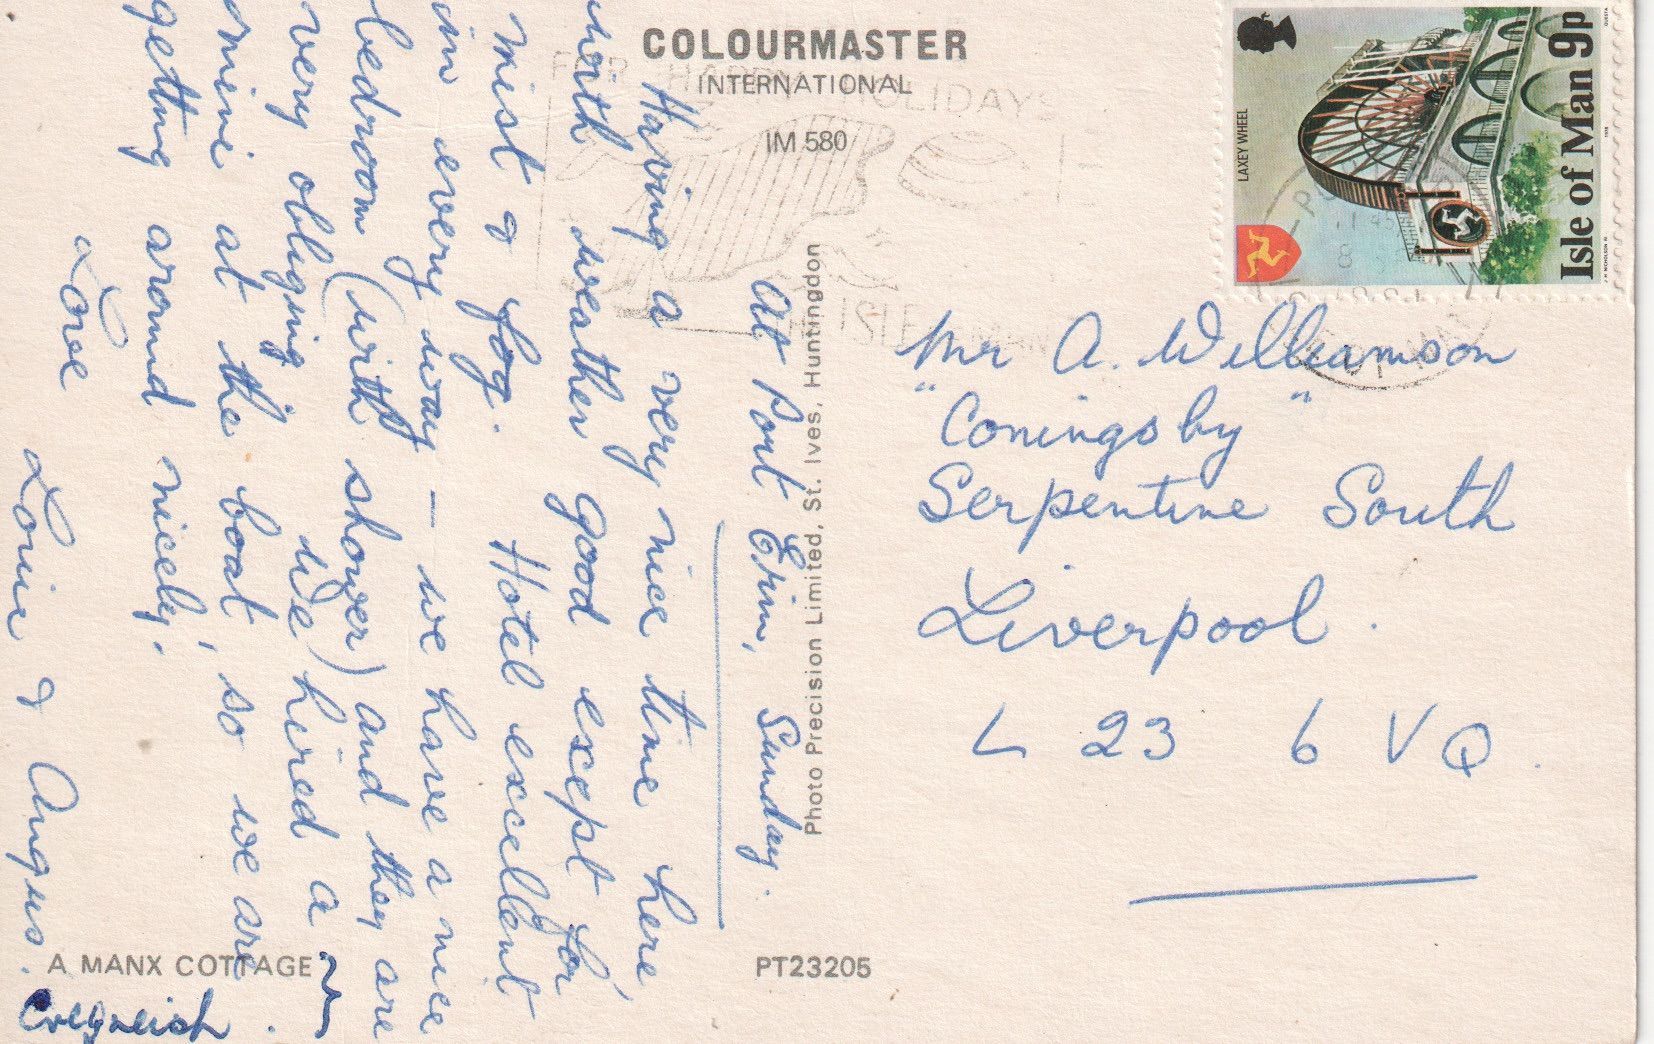 COLOURMASTER
INTERNATIONAL
IM 580
FOR HAPPY HOLIDAYS
ISLE
MAN
At Port Erin, Sunday.
Having a very nice time here
with weather good except for
mist & fog. Hotel excellent
in every way – we have a nice
bedroom (with shower) and they are
very obliging. We hired a
mini at the boat, so we are
getting around nicely.
Love
Lorie & Angus.
A MANX COTTAGE
Cregneish.
PT23205
Photo Precision Limited, St. Ives, Huntingdon
LAXEY WHEEL
Isle of Man 9p
J.H. NICHOLSON RI
1978
QUESTA
Mr A. Williamson
"Coningsby"
Serpentine South
Liverpool.
L 23 6 VQ.